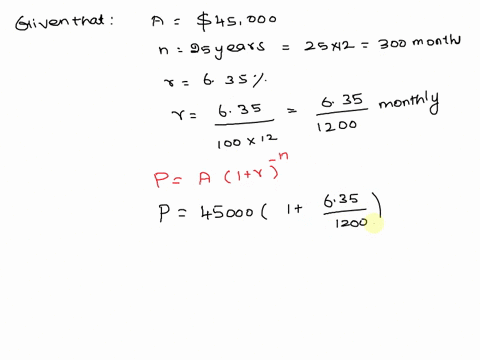 Given that: A = $45,000
n = 25 years = 25×12 = 300 month
r = 6.35%
r = 6.35 / 100 × 12 = 6.35 / 1200 monthly
P = A (1+r)^-n
P = 45000 ( 1 + 6.35 / 1200 )